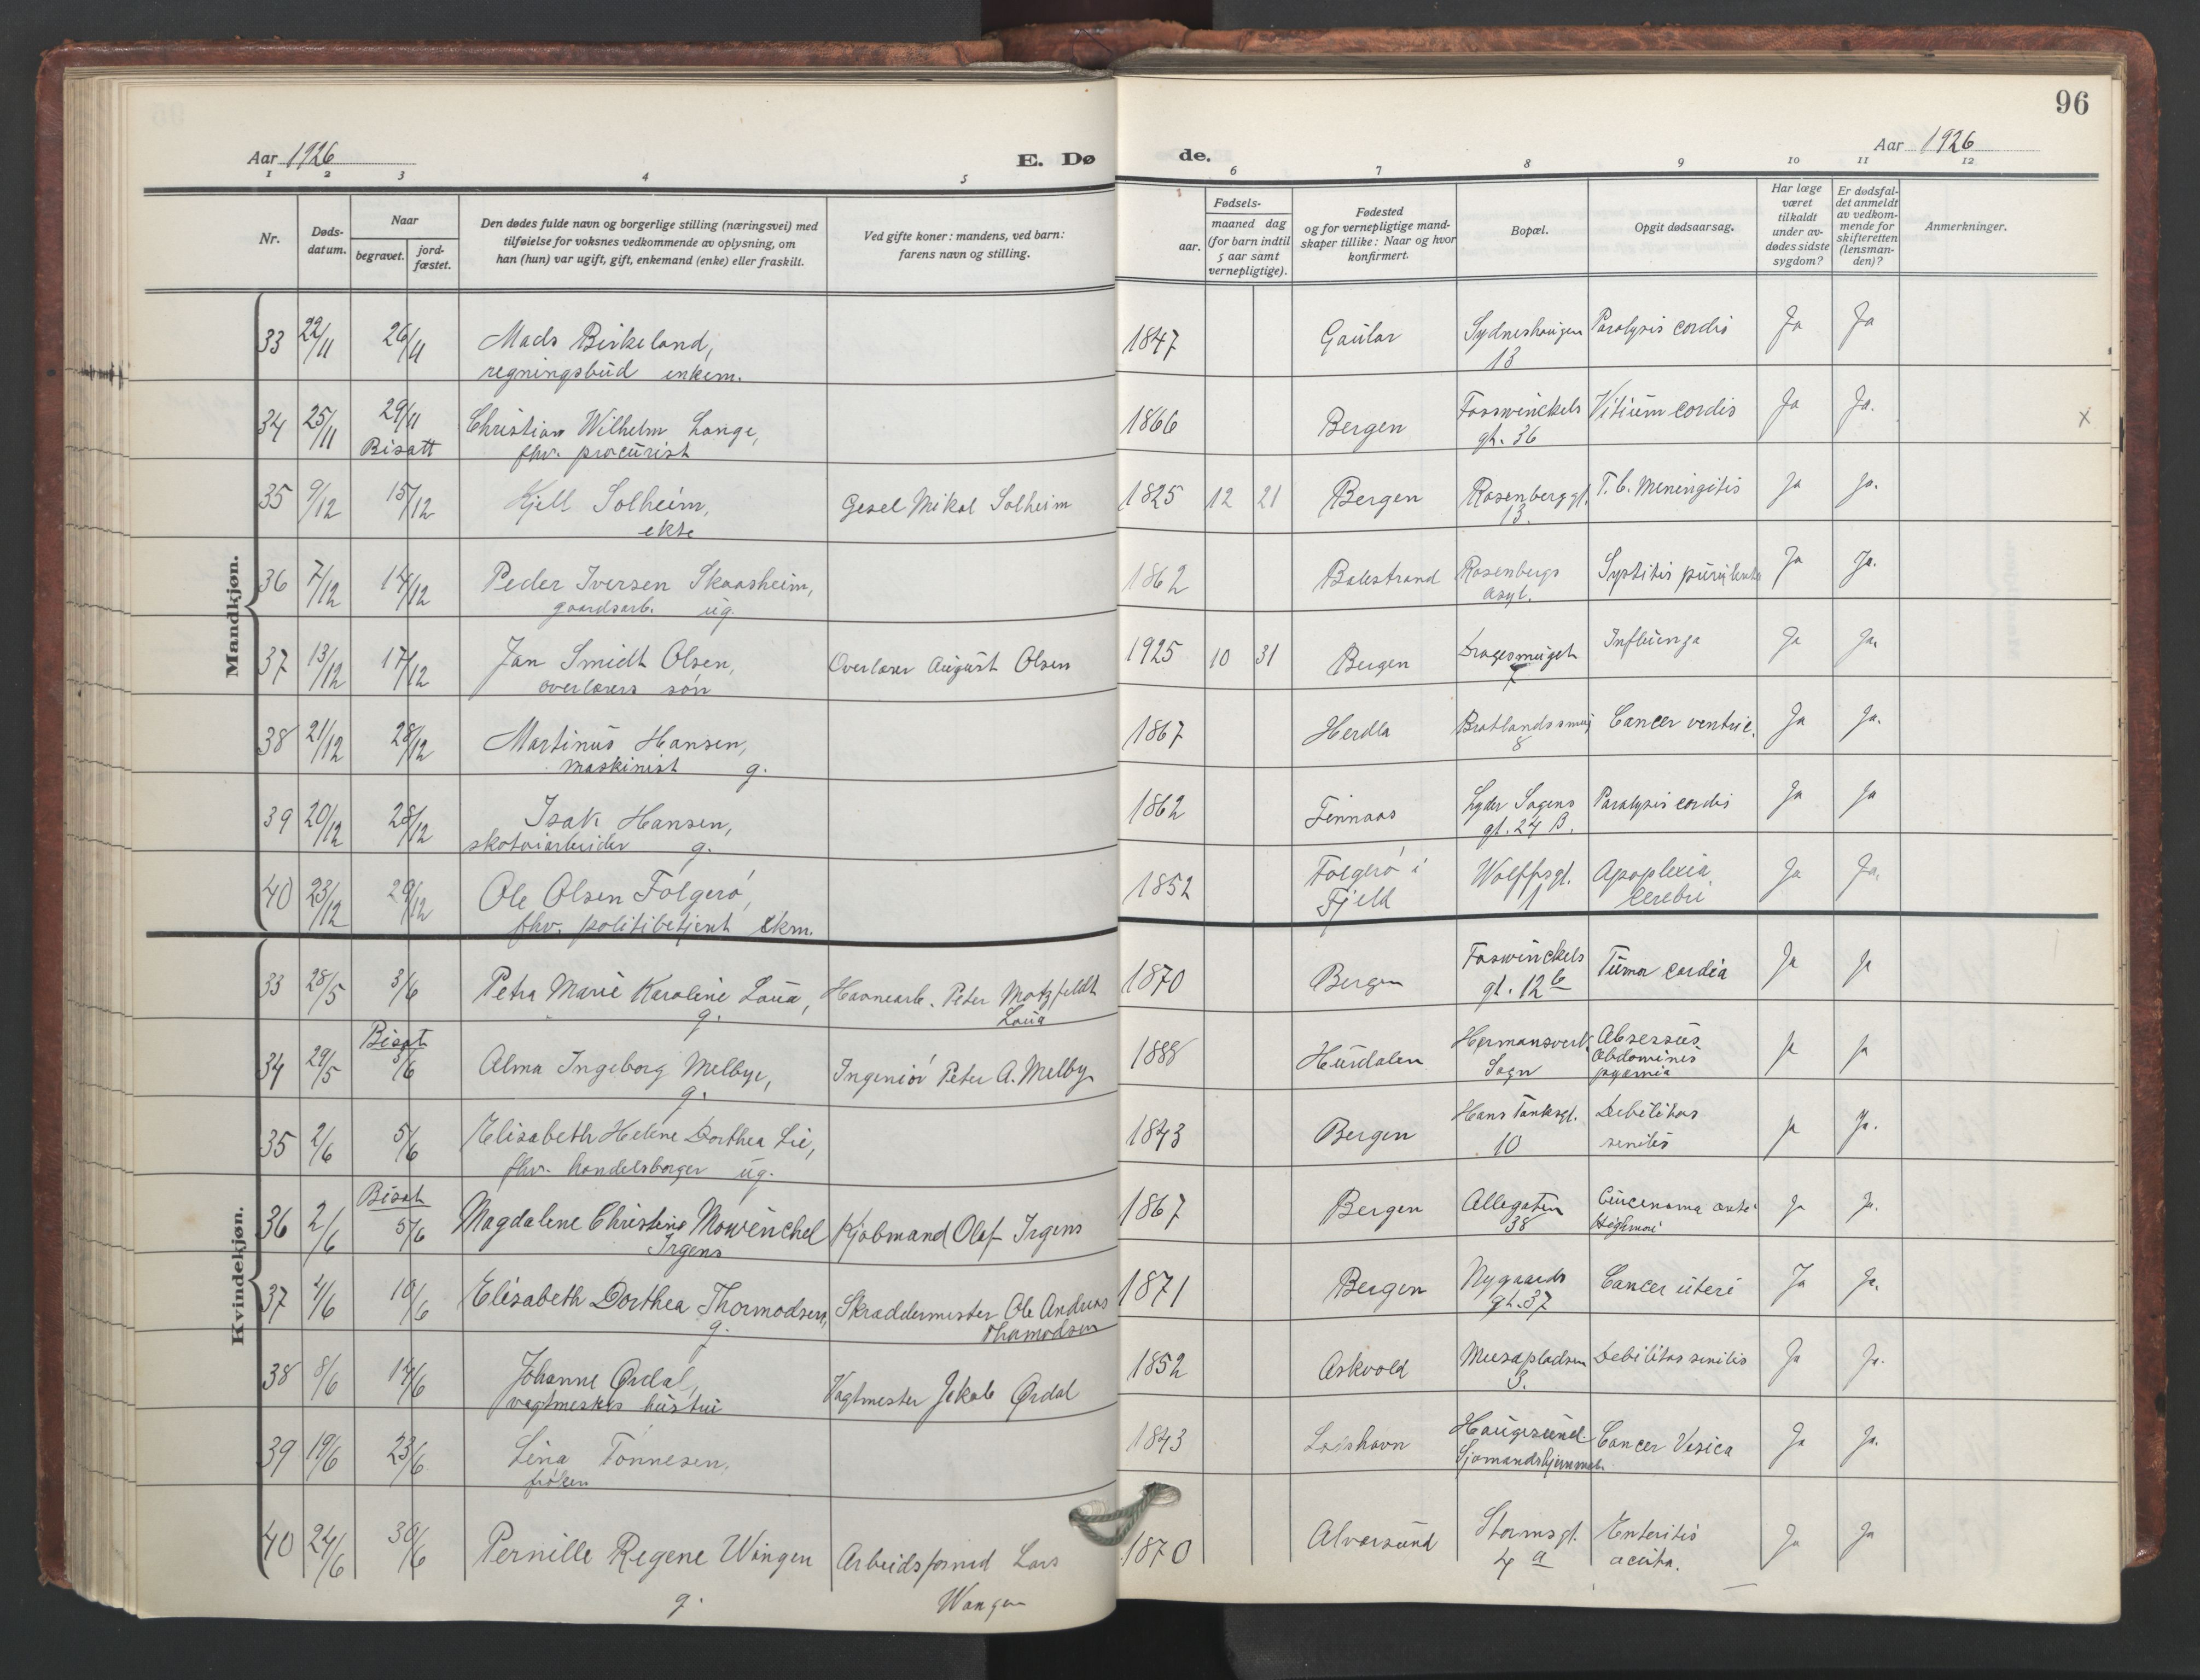 96
Aar 1926
E. Dø
de.
Aar 1926
1 2 3 4 5 6 7 8 9 10 11 12
Nr.
Døds-
datum.
Naar
begravet.
jord-
fæstet.
Den dødes fulde navn og borgerlige stilling (næringsvei) med
tilføielse for voksnes vedkommende av oplysning, om
han (hun) var ugift, gift, enkemand (enke) eller fraskilt.
Ved gifte koner: mandens, ved barn:
farens navn og stilling.
aar.
Fødsels-
maaned dag
(for barn indtil
5 aar samt
vernepligtige).
Fødested
og for vernepligtige mand-
skaper tillike: Naar og hvor
konfirmert.
Bopæl.
Opgit dødsaarsag.
Har læge
været
tilkaldt
under av-
dødes sidste
sygdom?
Er dødsfal-
det anmeldt
av vedkom-
mende for
skifteretten
(lensman-
den)?
Anmerkninger.
Mandkjøn.
33 22/11 26/11 Mads Birkeland, 1847 Gaular Sydneshaugen Paralysis cordis Ja Ja
regningsbud enkem. 13
34 25/11 29/11 Christian Wilhelm Lange, 1866 Bergen Fosswinckels Vitium cordis Ja Ja. x
Bisatt fhv. procurist gt. 36
35 9/12 15/12 Kjell Solheim, Gesel Mikal Solheim 1825 12 21 Bergen Rosenberggt. T.b. Meningitis Ja Ja.
ekte 13.
36 7/12 14/12 Peder Iversen Skaasheim, 1862 Balestrand Rosenbergs Ja Ja.
gaardsarb. ug. asyl.
37 13/12 17/12 Jan Smidt Olsen, Overlærer August Olsen 1925 10 31 Bergen Dragesmuget Influenza Ja Ja.
overlærers søn 7
38 21/12 28/12 Martinus Hansen, 1867 Herdla Bratlandssmug Cancer ventric. Ja Ja.
maskinist g. 8
39 20/12 28/12 Isak Hansen, 1862 Finnaas Lyder Sagens Paralysis cordis Ja Ja
skotøiarbeider g. gt. 24 B.
40 23/12 29/12 Ole Olsen Folgerø, 1852 Folgerø i Wolffsgt. Apoplexia Ja Ja.
fhv. politibetjent ekm. Fjeld 1 Cerebri
Kvindekjøn.
33 28/5 3/6 Petra Marie Karoline Loua, Havnearb. Peter Motzfeldt 1870 Bergen Foswinckels Tumor cardia Ja Ja
g. Loua gt. 12 b
34 29/5 Bisat 3/6 Alma Ingeborg Melbye, Ingeniør Peter A. Melby 1888 Hurdalen Hermansverk Absessus Ja Ja
g. Sogn Abdominis
pyæmia
35 2/6 5/6 Elisabeth Helene Dorthea Lie, 1843 Bergen Hans Tanksgt. Debilitas Ja Ja.
fhv. handelsborger ug. 10 senilis
36 2/6 Bisat 5/6 Magdalene Christine Mowinckel Kjøbmand Olaf Irgens 1867 Bergen Allegaten Ja Ja.
Irgens 38 Highmori
37 4/6 10/6 Elisabeth Dorthea Thormodsen, Skræddermester Ole Andreas 1871 Bergen Nygaards Cancer uteri Ja Ja.
g. Thormodsen gt. 37
38 8/6 14/6 Johanne Ørdal, Vagtmester Jakob Ørdal 1852 Askvold Musepladsen Debilitas senilis Ja Ja.
vagtmesters hustru 3.
39 19/6 23/6 Lina Tønnesen, 1843 Loshavn Haugesund Cancer Vesica Ja Ja.
frøken Sjømandshjemmet.
40 24/6 30/6 Pernille Regene Wangen Arbeidsformd Lars 1870 Alversund Stormsgt. Enteritis Ja Ja
g. Wangen 4 a acuta.